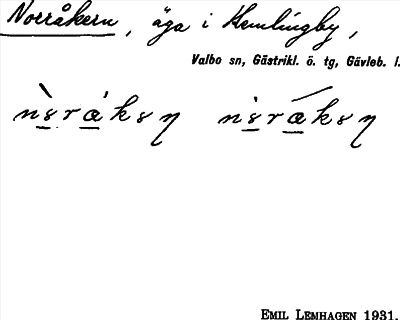 Norråkern, äga i Hemlingby,
Valbo sn, Gästrikl. ö. tg, Gävleb. l.
EMIL LEMHAGEN 1931.